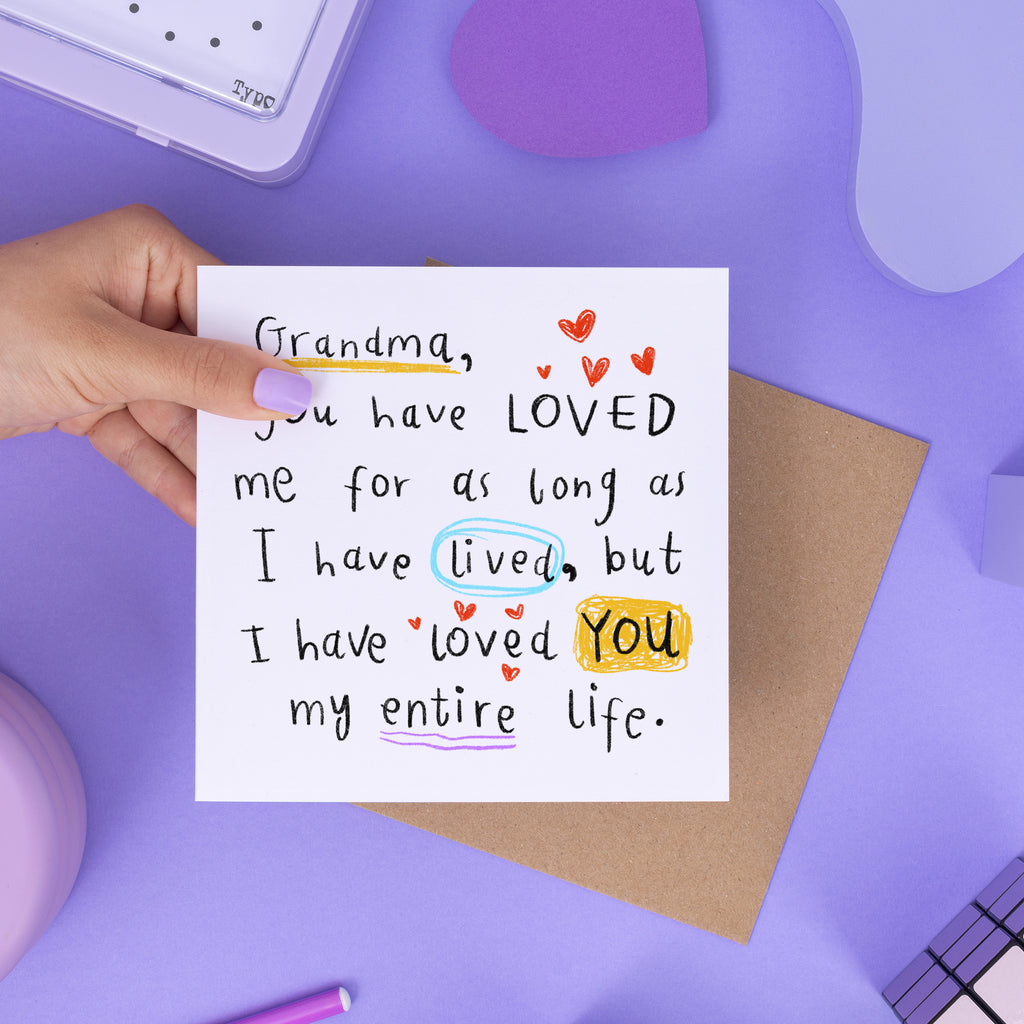 Typo
Grandma,
you have LOVED
me for as long as
I have lived, but
I have loved YOU
my entire life.